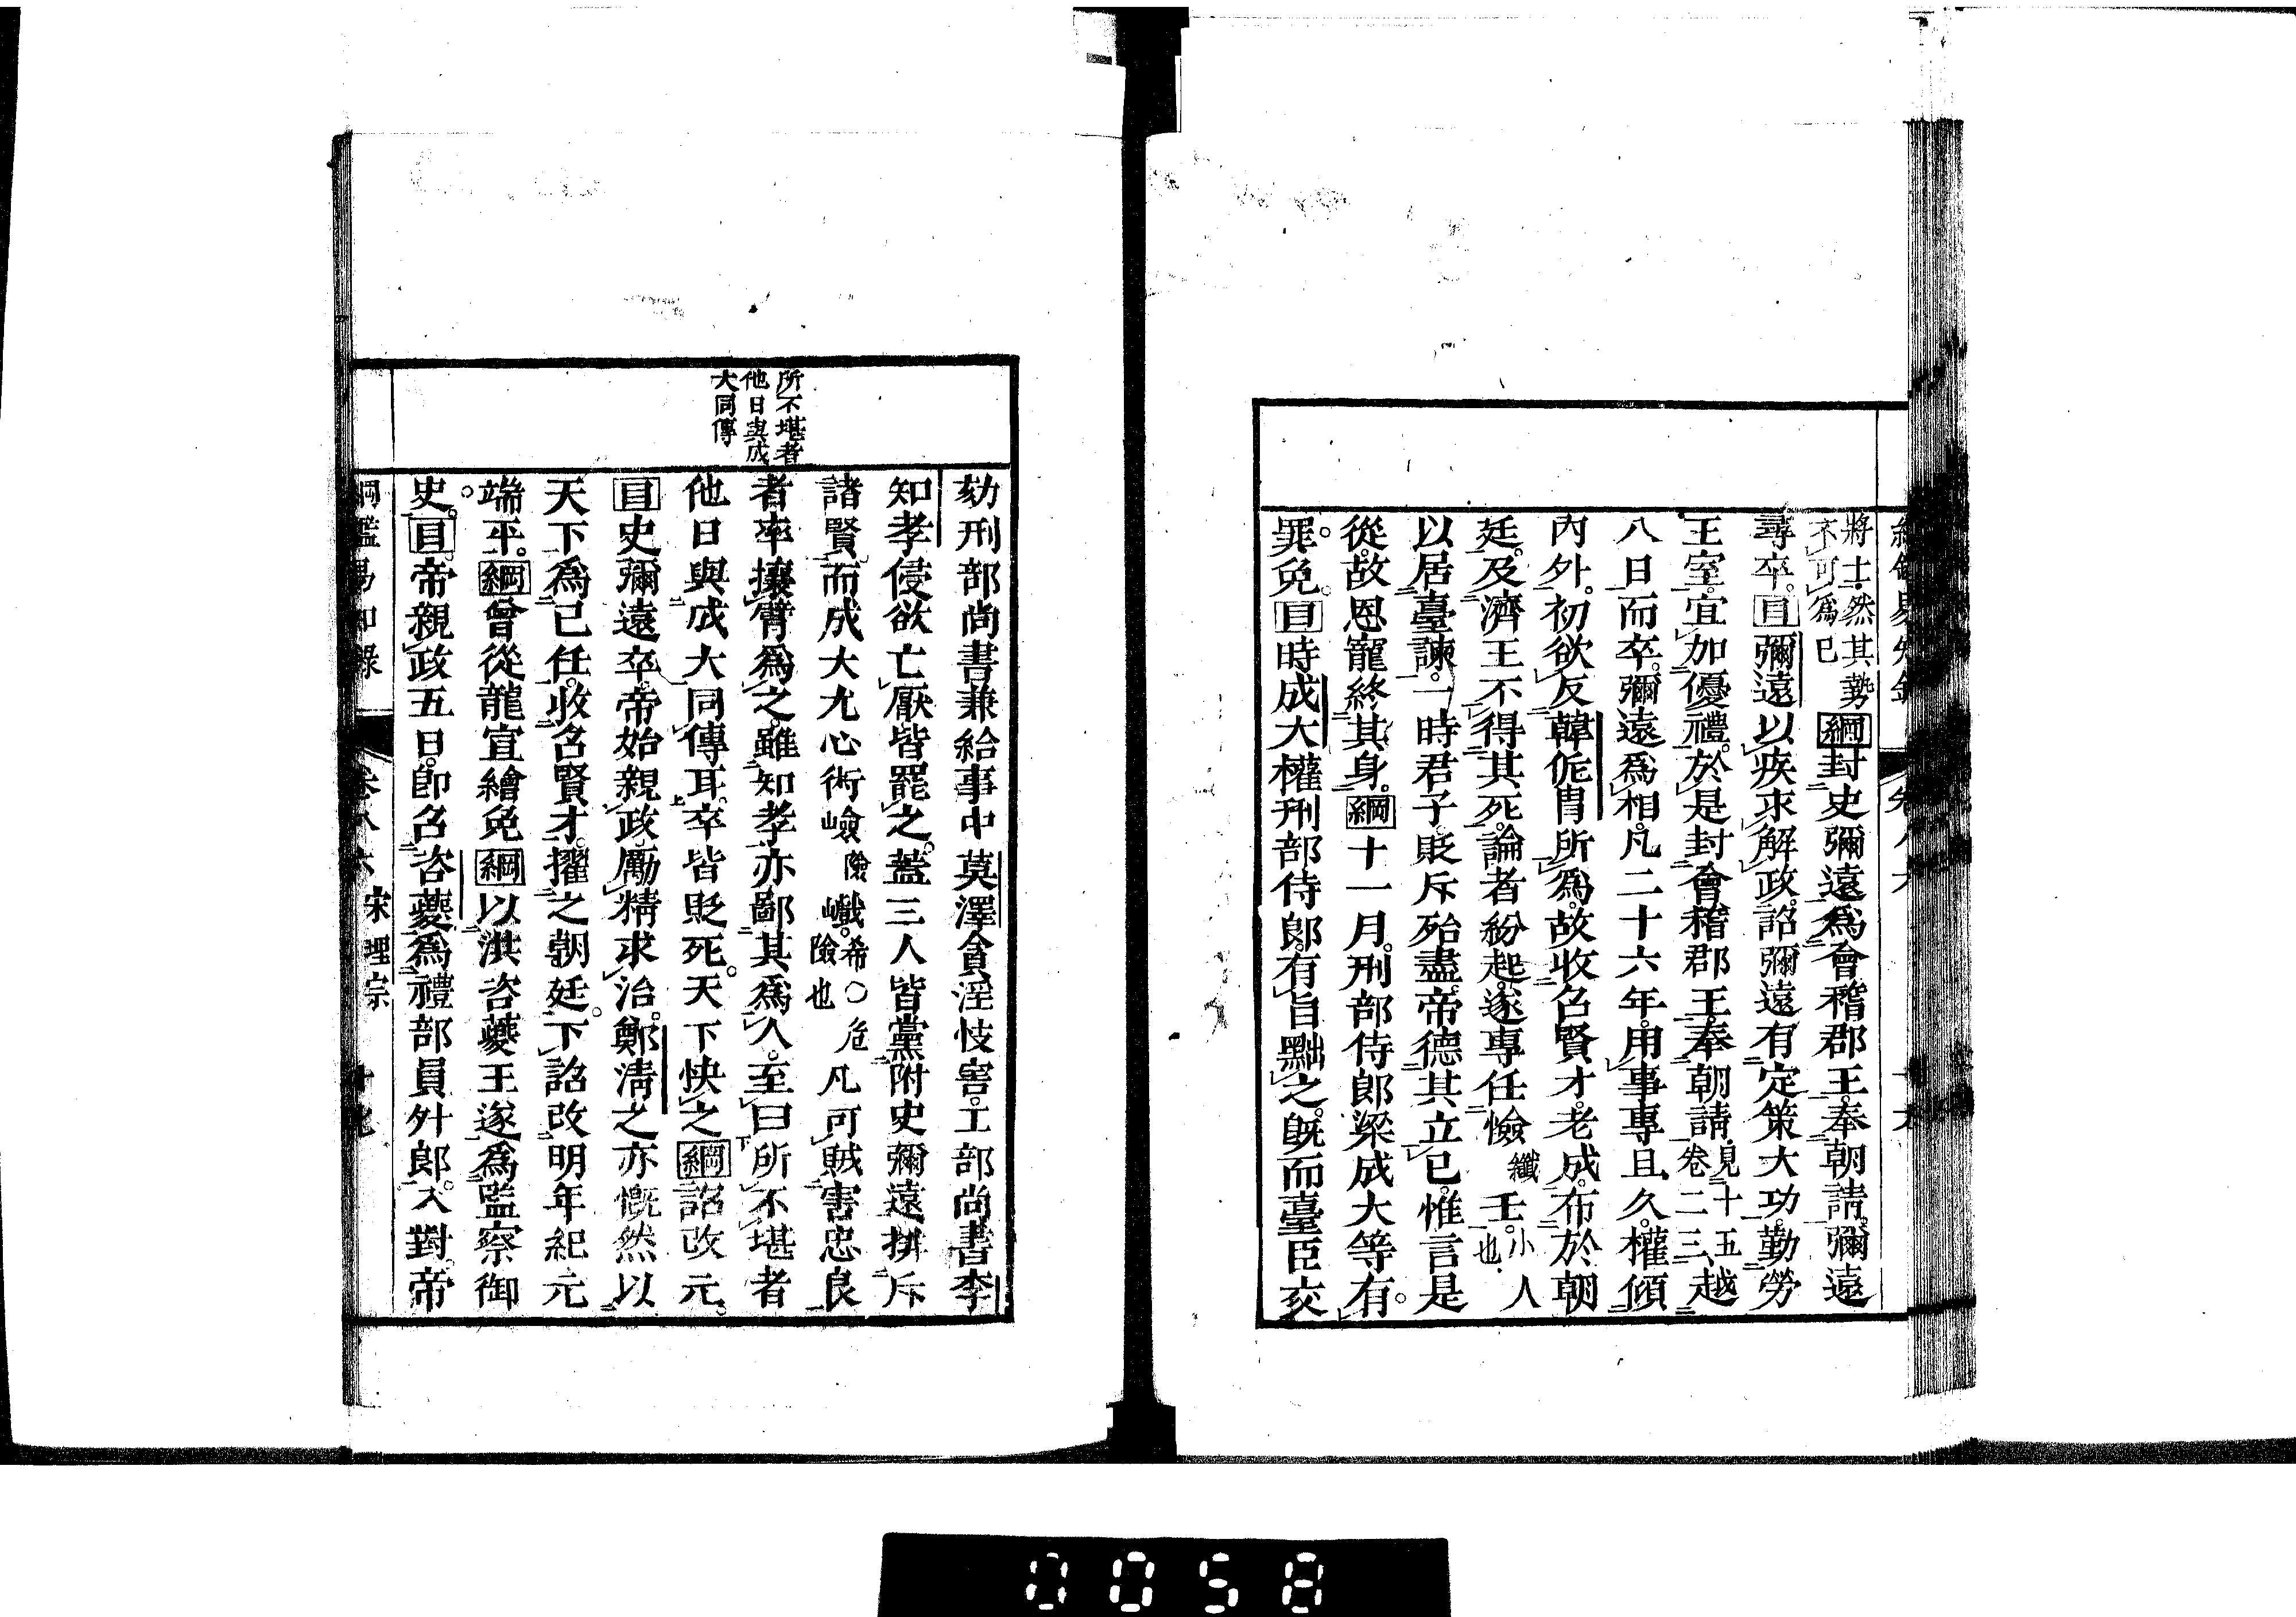 將士然其勢
不可爲巳
綱封史彌遠爲會稽郡王奉朝請彌遠
尋卒目彌遠以疾求解政詔彌遠有定策大功勤勞
王室宜加優禮於是封會稽郡王奉朝請見十五卷二三越
八日而卒彌遠爲相凡二十六年用事專且久權傾
內外初欲反韓侂冑所爲故收召賢才老成布於朝
廷及濟王不得其死論者紛起遂專任憸纖壬小人也
以居臺諫一時君子貶斥殆盡帝德其立已惟言是
從故恩寵終其身綱十一月刑部侍郎梁成大等有
罪免目時成大權刑部侍郎有旨黜之旣而臺臣交
所不堪者
他日與成
大同傳
劾刑部尚書兼給事中莫澤貪淫忮害工部尚書李
知孝侵欲亡厭皆罷之蓋三人皆黨附史彌遠排斥
諸賢而成大尤心術嶮險巇希○危險也凡可賊害忠良
者率攘臂爲之雖知孝亦鄙其爲人至曰所不堪者
他日與成大同傳耳卒皆貶死天下快之綱詔改元
目史彌遠卒帝始親政厲精求治鄭淸之亦慨然以
天下爲己任收召賢才擢之朝廷下詔改明年紀元
端平綱曾從龍宣繒免綱以洪咨夔王遂爲監察御
史目帝親政五日卽召咨夔爲禮部員外郎入對帝
綱鑑易知錄 卷八六 宋理宗